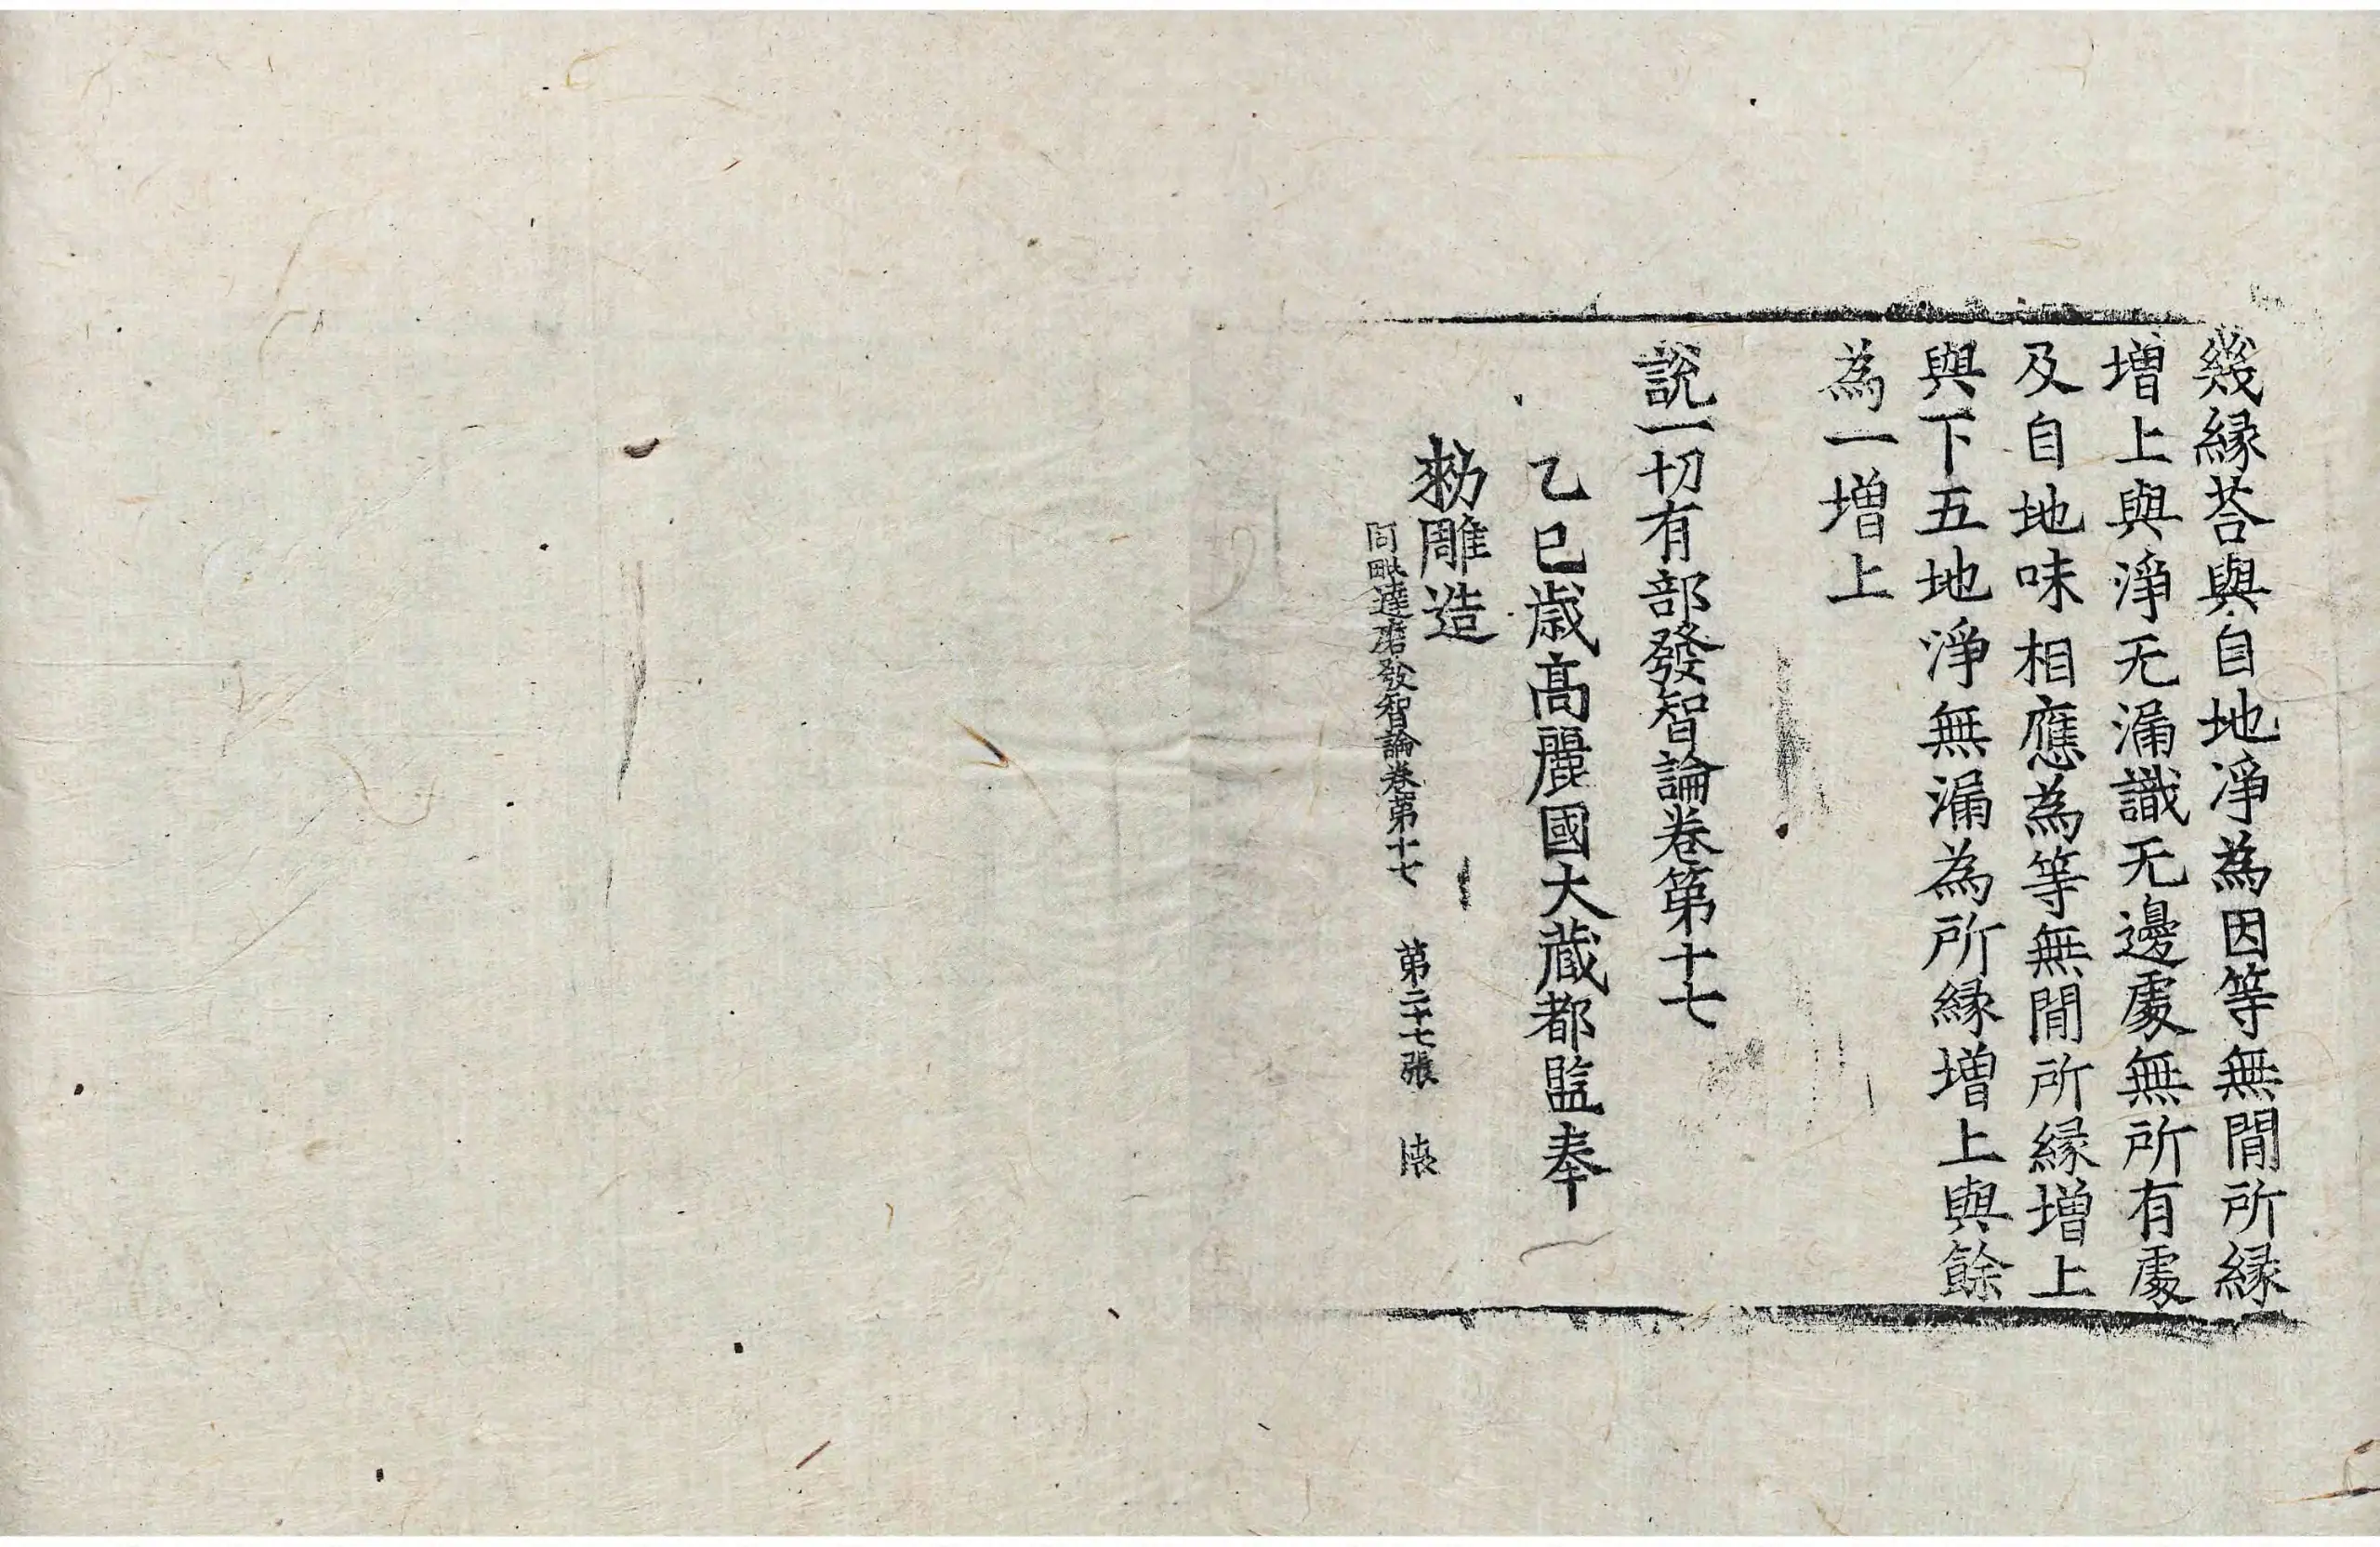 幾縁荅與自地淨為因等無閒所縁
增上與淨无漏識无邊處無所有處
及自地味相應為等無閒所縁增上
與下五地淨無漏為所縁增上與餘
為一增上
說一切有部發智論卷第十七
乙巳歳高麗國大藏都監奉
勑雕造
阿毗達磨發智論卷第十七 第二十七張